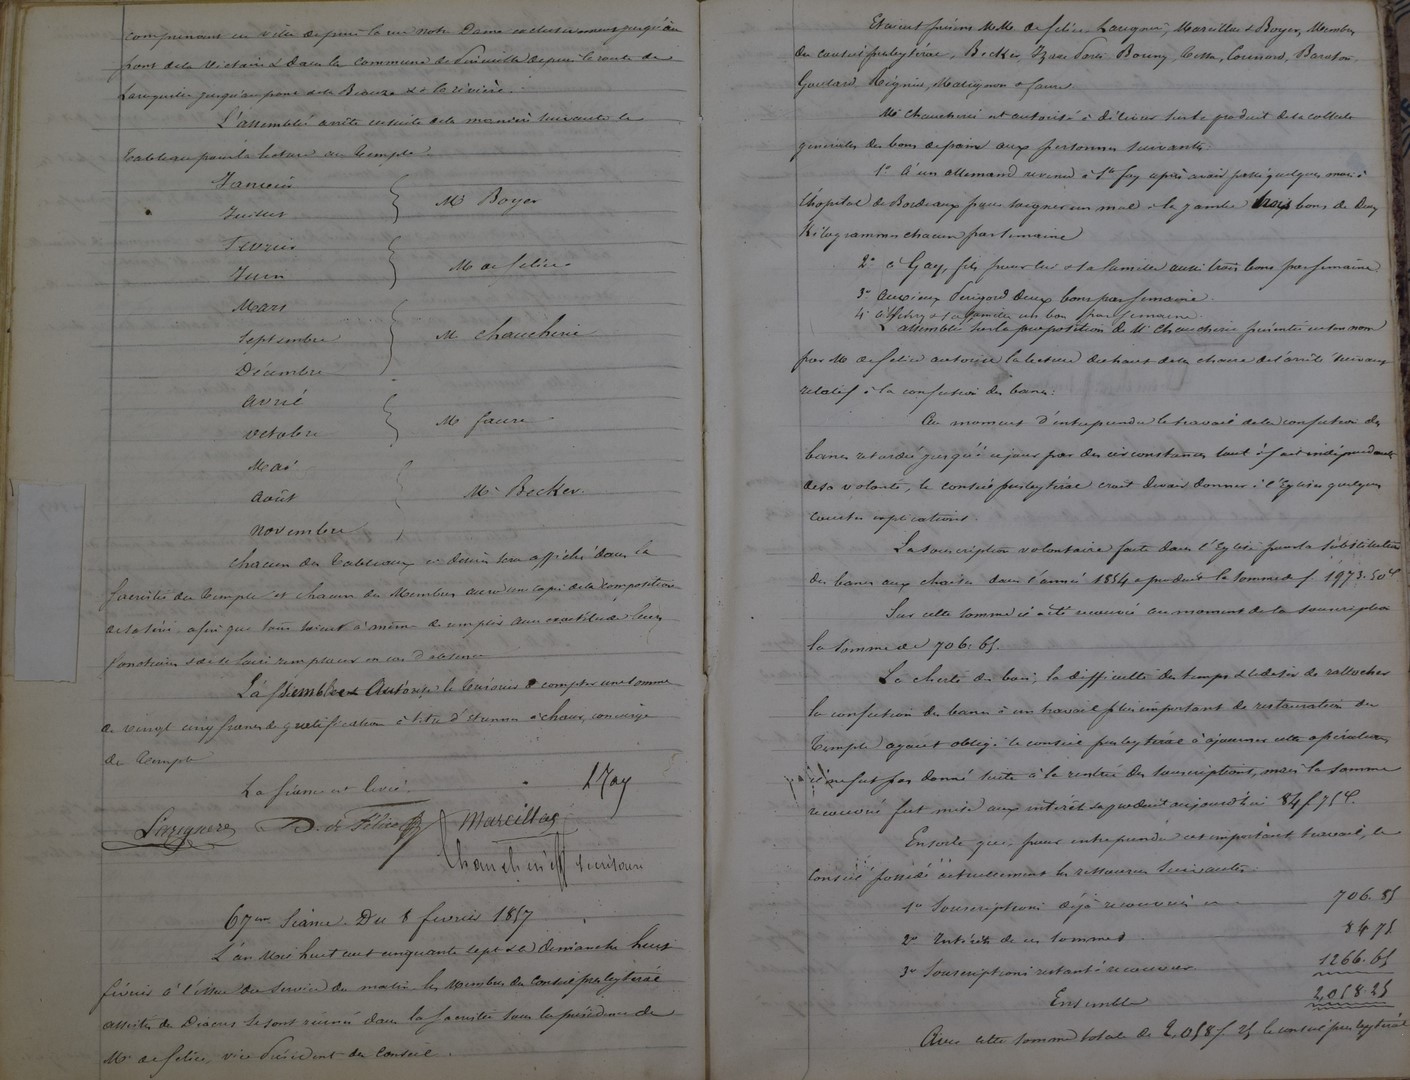 comprenant en ville depuis la rue notre Dame exclusivement jusqu'au
pont de la Victoire & dans la Commune de Pineuilh depuis la route de
jusqu'au pont de la Beauze & à la rivière.
L'assemblée arrête ensuite de la manière suivante le
tableau pour la lecture au Temple.
Janvier
Juillet
Mr Boyer
Février
Juin
Mr de félice
Mars
Septembre
Décembre
Mr Chaucherie
Avril
Octobre
Mr faure
Mai
Août
Novembre
Mr Becker
Chacun des Tableaux ci dessus sera affiché dans la
Sacristie du Temple et chacun des Membres aura une copie de la composition
afin que tous soient à même de remplir avec exactitude leurs
fonctions & de se faire remplacer en cas d'absence
L'assemblée Autorise le trésorier à compter une somme
de vingt cinq francs de gratification à titre d'étrennes à concierge
du Temple
La séance est levée.
Laugnere D. de Félice Mareillac
Chaucherie secrétaire
67eme Séance. Du 8 février 1857
L'an Mil huit cent cinquante sept & le dimanche huit
février à l'issue du service du matin les Membres du Conseil presbytéral
assistés des Diacres se sont réunis dans la Sacristie sous la présidence de
Mr de félice, vice Président du Conseil.
Etaient présens M.M. de félice, Mareillac & Boyer, Membres
du conseil presbytéral, Becker, Bouny, Baraton,
Goulard, Mignon, Matignon & faure
Mr Chaucherie est autorisé à délivrer sur le produit de la collecte
générale des bons de pain aux personnes suivantes
1° à un allemand revenu à Ste foy après avoir passé quelques mois à
l'hopital de Bordeaux pour soigner un mal à la jambe trois bons de deux
Kilogrammes chacun par semaine
2° à Gay, fils, pour lui & sa famille aussi trois bons par semaine
3° au vieux Perigord deux bons par semaine
4° à & sa famille un bon par semaine.
L'assemblée sur la proposition de Mr Chaucherie présentée en son nom
par Mr de félice autorise la lecture du haut de la chaire de l'arrêté suivant
relatif à la confection des bancs:
Au moment d'entreprendre le travail de la confection des
bancs retardé jusqu'à ce jour par des circonstances tout à fait indépendantes
de sa volonté, le conseil presbytéral croit devoir donner à l'Eglise quelques
courtes explications.
La souscription volontaire faite dans l'Eglise pour la substitution
des bancs aux chaises dans l'année 1854 a produit la somme de f 1973.50c
Sur cette somme il a été recouvré au moment de la souscription
la somme de 706.85.
La cherté du bois, la difficulté des temps & le désir de rattacher
la confection des bancs à un travail plus important de restauration du
Temple ayant obligé le conseil presbytéral à ajourner cette opération
il ne fut pas donné suite à la rentrée des souscriptions, mais la somme
recouvrée fut mise aux intérêts & a produit aujourd'hui 84f 75c.
Ensorte que, pour entreprendre cet important travail, le
Conseil possède actuellement les ressources suivantes:
1° Souscriptions déjà recouvrées 706.85
2° Intérêts de ces sommes 84.75
3° Souscriptions restant à recouvrer 1266.65
Ensemble 2,058.25
Avec cette somme totale de 2,058f 25 le conseil presbytéral